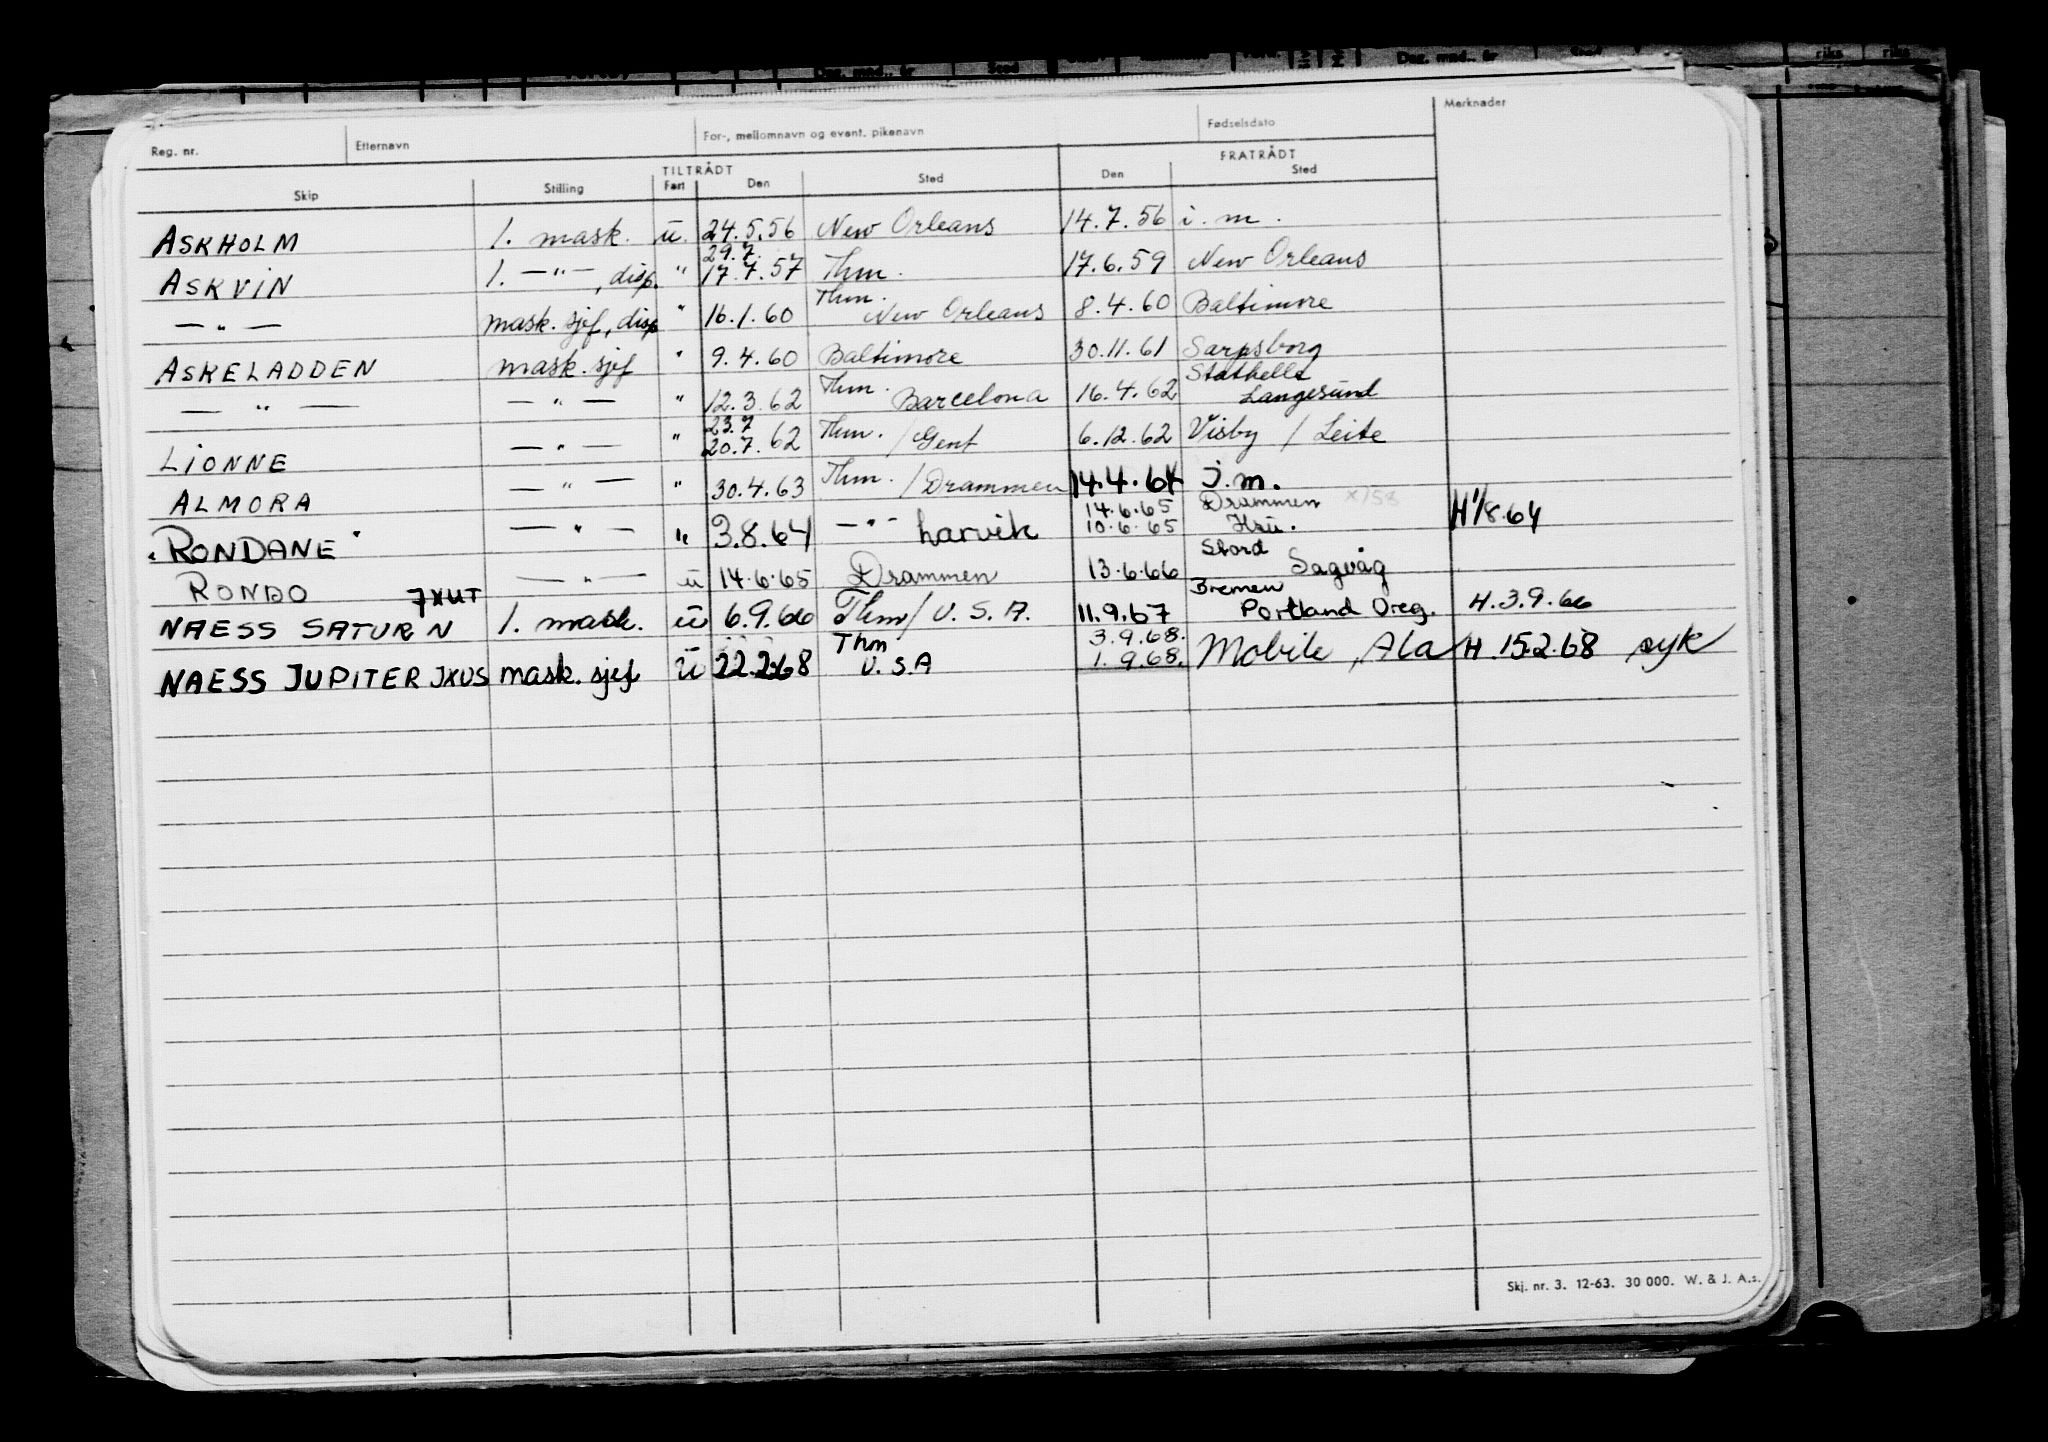 Reg. nr. Etternavn For-, mellomnavn og event. pikenavn Fødselsdato Merknader
TILTRÅDT FRATRÅDT
Skip Stilling Fart Den Sted Den Sted
ASKHOLM 1. mask. u. 24.5.56 New Orleans 14.7.56 i. m.
29.7.
ASKVIN 1. —"—, disp. " 17.7.57 Thm. 17.6.59 New Orleans
—"— mask. sjef, disp " 16.1.60 Thm. New Orleans 8.4.60 Baltimore
ASKELADDEN mask. sjef " 9.4.60 Baltimore 30.11.61 Sarpsborg
—"— —"— " 12.3.62 Thm. Barcelona 16.4.62 Stathelle Langesund
23.7
LIONNE —"— " 20.7.62 Thm. / Gent 6.12.62 Visby / Leite
ALMORA —"— " 30.4.63 Thm. / Drammen 14.4.64 i.m.
14.6.65 Drammen
"RONDANE" —"— " 3.8.64 —"— Larvik 10.6.65 Hsu. H 1/8.64
RONDO —"— u 14.6.65 Drammen 13.6.66 Stord Sagvåg
NAESS SATURN JXUT 1. mask. u 6.9.66 Thm/ U.S.A. 11.9.67 Bremen Portland Oreg. H. 3.9.66
3.9.68.
NAESS JUPITER JXUS mask. sjef u 22.2.68 Thm U.S.A 1.9.68. Mobile, Ala H. 15.2.68 syk
Skj. nr. 3. 12-63. 30 000. W. & J. A.s.